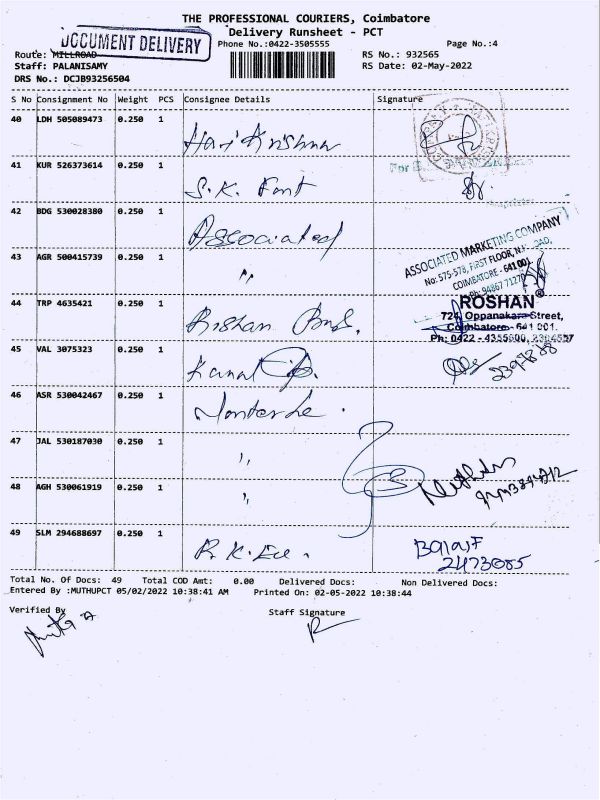 THE PROFESSIONAL COURIERS, Coimbatore
Delivery Runsheet - PCT
DOCUMENT DELIVERY
Phone No.:0422-3505555
Page No.:4
Route: MILLROAD
RS No.: 932565
Staff: PALANISAMY
RS Date: 02-May-2022
DRS No.: DCJB93256504
S No Consignment No Weight PCS Consignee Details Signature
40 LDH 505089473 0.250 1
Hari Krishna
41 KUR 526373614 0.250 1
S.K. Font
42 BDG 530028380 0.250 1
Associated
43 AGR 500415739 0.250 1
"
ASSOCIATED MARKETING COMPANY
No: 575-578, FIRST FLOOR,
COIMBATORE - 641 001.
44 TRP 4635421 0.250 1
ROSHAN
724, Oppanakara Street,
Coimbatore - 641 001.
Ph: 0422 - 4355600,
45 VAL 3075323 0.250 1
46 ASR 530042467 0.250 1
47 JAL 530187030 0.250 1
"
48 AGH 530061919 0.250 1
"
49 SLM 294688697 0.250 1
Balaji
2473085
Total No. Of Docs: 49 Total COD Amt: 0.00 Delivered Docs: Non Delivered Docs:
Entered By :MUTHUPCT 05/02/2022 10:38:41 AM Printed On: 02-05-2022 10:38:44
Verified By Staff Signature